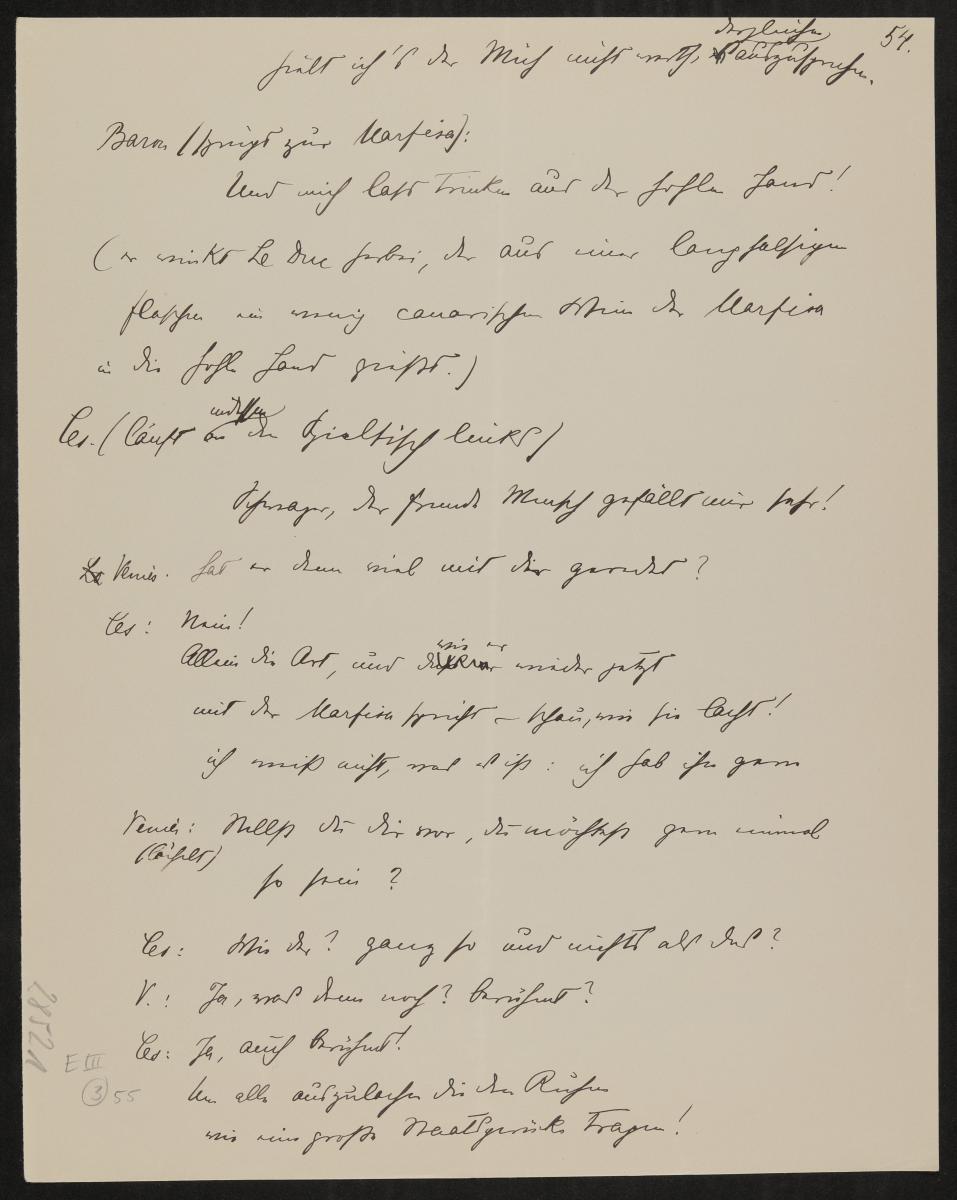 54.
dergleichen
hielt ich's der Müh nicht werth, auszusprechen.
Baron (springt zur Marfisa):
Und mich lass trinken aus der hohlen Hand!
(er winkt Le Duc herbei, der aus einer langhalsigen
Flasche ein wenig canarischen Wein der Marfisa
in die hohle Hand gießt.)
indessen
Ces. (läuft an den Spieltisch links)
Schwager, der fremde Mensch gefällt mir sehr!
Le Venier. Hat er denn viel mit dir geredet?
Ces: Nein!
wie er
Allein die Art, und wieder jetzt
mit der Marfisa spricht – schau, wie sie lacht!
ich weiß nicht, was es ist: ich hab ihn gern
Venier: Stellst du dir vor, du möchtest gern einmal
(lächelt)
so sein?
Ces: Wie der? ganz so und nichts als das?
V.: Ja, was denn noch? berühmt?
Ces: Ja, auch berühmt!
Um alle auszulachen die den Ruhm
wie eine große Staatsperücke tragen!
28521
E III
3 55